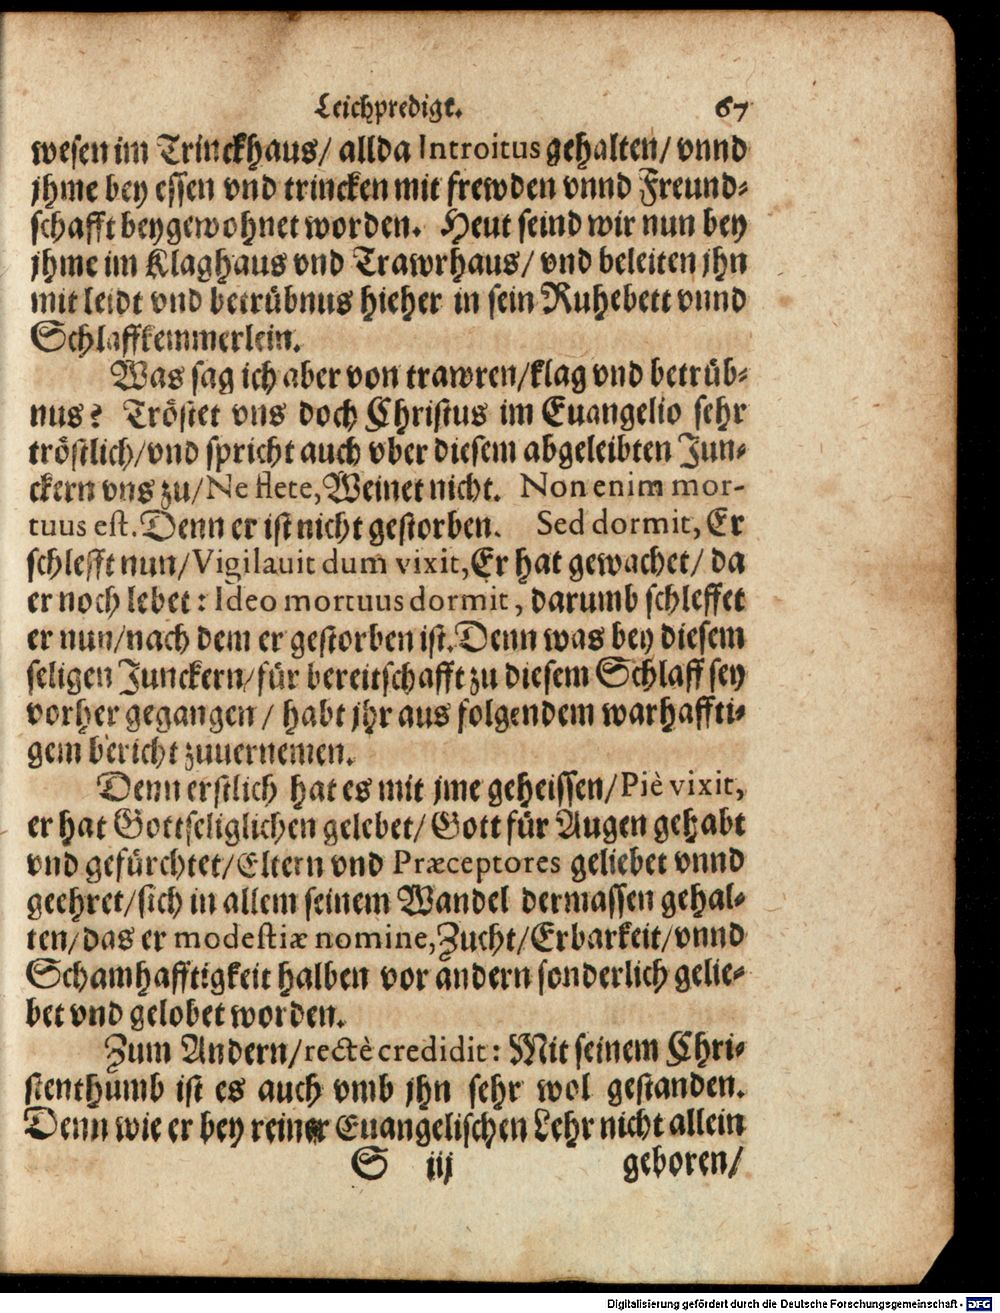 Leichpredigt. 67
wesen im Trinckhaus/ allda Introitus gehalten/ vnnd
jhme bey essen vnd trincken mit frewden vnnd Freund-
schafft beygewohnet worden. Heut seind wir nun bey
jhme im Klaghaus vnd Trawrhaus/ vnd beleiten jhn
mit leidt vnd betrübnus hieher in sein Ruhebett vnnd
Schlaffkemmerlein.
Was sag ich aber von trawren/klag vnd betrüb-
nus? Tröstet vns doch Christus im Euangelio sehr
tröstlich/vnd spricht auch vber diesem abgeleibten Jun-
ckern vns zu/Ne flete, Weinet nicht. Non enim mor-
tuus est. Denn er ist nicht gestorben. Sed dormit, Er
schlefft nun/Vigilauit dum vixit, Er hat gewachet/ da
er noch lebet: Ideo mortuus dormit, darumb schleffet
er nun/nach dem er gestorben ist. Denn was bey diesem
seligen Junckern/für bereitschafft zu diesem Schlaff sey
vorher gegangen/ habt jhr aus folgendem warhaffti-
gem bericht zuuernemen.
Denn erstlich hat es mit jme geheissen/Piè vixit,
er hat Gottseliglichen gelebet/Gott für Augen gehabt
vnd gefürchtet/Eltern vnd Præceptores geliebet vnnd
geehret/sich in allem seinem Wandel dermassen gehal-
ten/das er modestiæ nomine, Zucht/Erbarkeit/vnnd
Schamhafftigkeit halben vor andern sonderlich gelie-
bet vnd gelobet worden.
Zum Andern/rectè credidit: Mit seinem Chri-
stenthumb ist es auch vmb jhn sehr wol gestanden.
Denn wie er bey reiner Euangelischen Lehr nicht allein
S iij geboren/
Digitalisierung gefördert durch die Deutsche Forschungsgemeinschaft - DFG